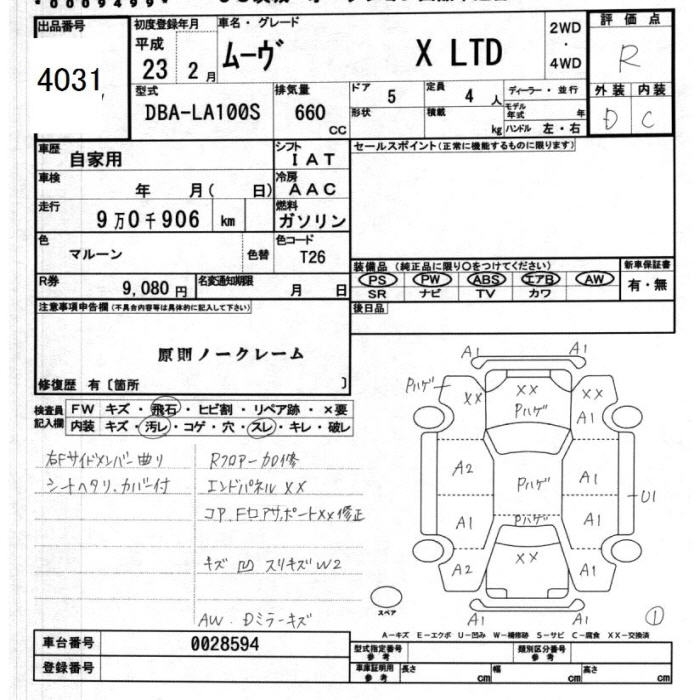 出品番号
4031
初度登録年月
平成
23 2月
車名・グレード
ムーヴ X LTD
2WD
・
4WD
評価点
R
外装 内装
D C
型式
DBA-LA100S
排気量
660
CC
ドア 5
形状
定員 4 人
積載 kg
ディーラー・並行
モデル年式 年
ハンドル 左・右
車歴
自家用
シフト
IAT
車検
年 月( 日)
冷房
AAC
走行
9万0千906 km
燃料
ガソリン
色
マルーン
色替
色コード
T26
R券
9,080円
名変通知期限
月 日
セールスポイント(正常に機能するものに限ります)
装備品 (純正品に限り○をつけてください)
PS PW ABS エアB AW
SR ナビ TV カワ
新車保証書
有・無
後日品
注意事項申告欄(不具合内容等は具体的に記入して下さい)
原則ノークレーム
修復歴 有〔箇所 〕
検査員記入欄
FW キズ・飛石・ヒビ割・リペア跡・×要
内装 キズ・汚レ・コゲ・穴・スレ・キレ・破レ
右Fサイドメンバー曲り
シートヘタリ、カバー付
Rフロアー加修
エンドパネルXX
コア、Fロアサポートxx修正
キズ 凹 スリキズW2
AW.Dミラーキズ
A1 A1
Pハゲ XX XX XX
Pハゲ A1
A2 Pハゲ A1
U1
A1 Pハゲ A1
A2 XX A1
A1 A1
スペア
①
A-キズ E-エクボ U-凹み W-補修跡 S-サビ C-腐食 XX-交換済
車台番号
0028594
登録番号
型式指定番号
参考
類別区分番号
参考
車庫証明用
参考
長さ cm 幅 cm 高さ cm